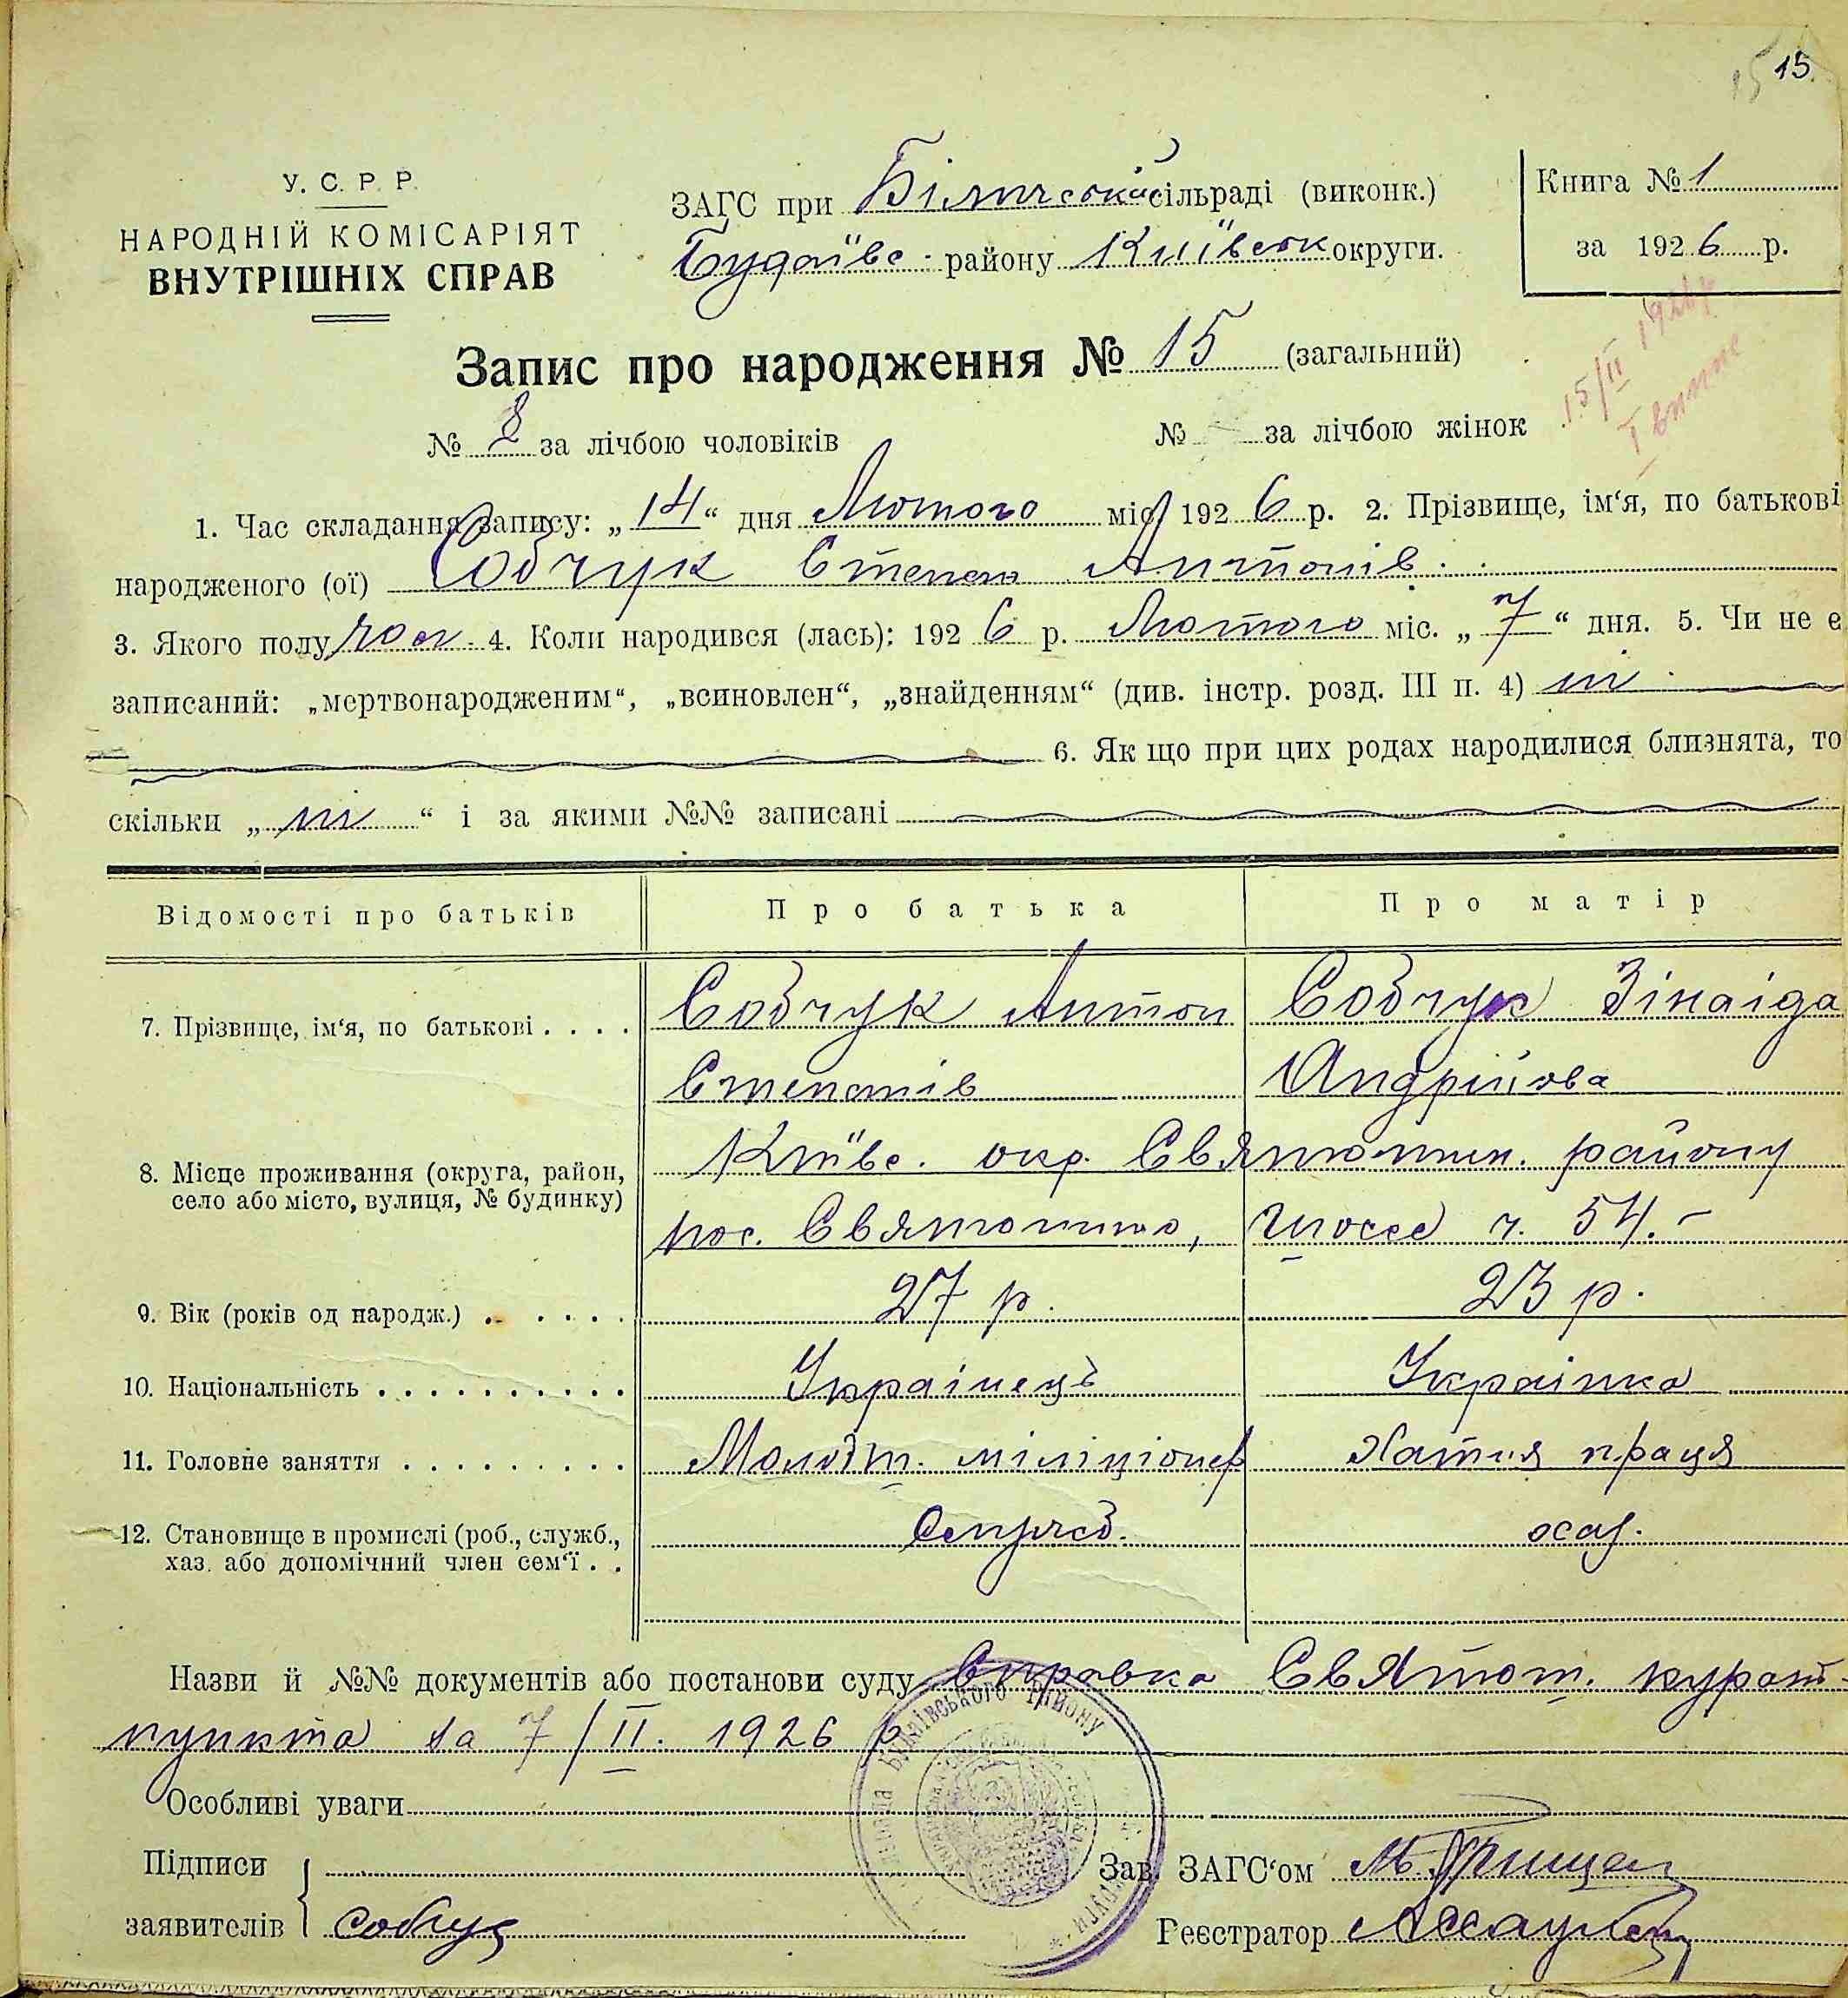 15
15.
У. С. Р. Р.
НАРОДНІЙ КОМІСАРІЯТ
ВНУТРІШНІХ СПРАВ
ЗАГС при Білический сільраді (виконк.)
Будаївс. району Київськ округи.
Книга № 1
за 1926 р.
15/II 1926 р
Запис про народження № 15 (загальний)
№ 8 за лічбою чоловіків № за лічбою жінок
1. Час складання запису: „14“ дня Лютого міс. 1926 р. 2. Прізвище, ім‘я, по батькові
народженого (ої) Собчук Степан Антонів.
3. Якого полу чол. 4. Коли народився (лась): 1926 р. Лютого міс. „7“ дня. 5. Чи не є
записаний: „мертвонародженим“, „всиновлен“, „знайденням“ (див. інстр. розд. III п. 4) ні
6. Як що при цих родах народилися близнята, то
скільки „ні“ і за якими №№ записані
Відомості про батьків Про батька Про матір
7. Прізвище, ім‘я, по батькові . . . . Собчук Антон Собчук Зінаіда
Степанів Андрійова
8. Місце проживання (округа, район, Київс. окр. Святошин. району
село або місто, вулиця, № будинку) пос. Святошино, шоссе ч. 54.
9. Вік (років од народж.) . . . . . . 27 р. 23 р.
10. Національність . . . . . . . . . . Українець Українка
11. Головне заняття . . . . . . . . . Молодш. міліціонер Хатня праця
12. Становище в промислі (роб., служб.,
хаз. або допомічний член сем‘ї . . Служб.
Назви й №№ документів або постанови суду Справка Святош. курат-
пункта за 7/II. 1926 р
Особливі уваги
Підписи
заявителів Собчук
Зав. ЗАГС‘ом
Реєстратор
Будаївського району